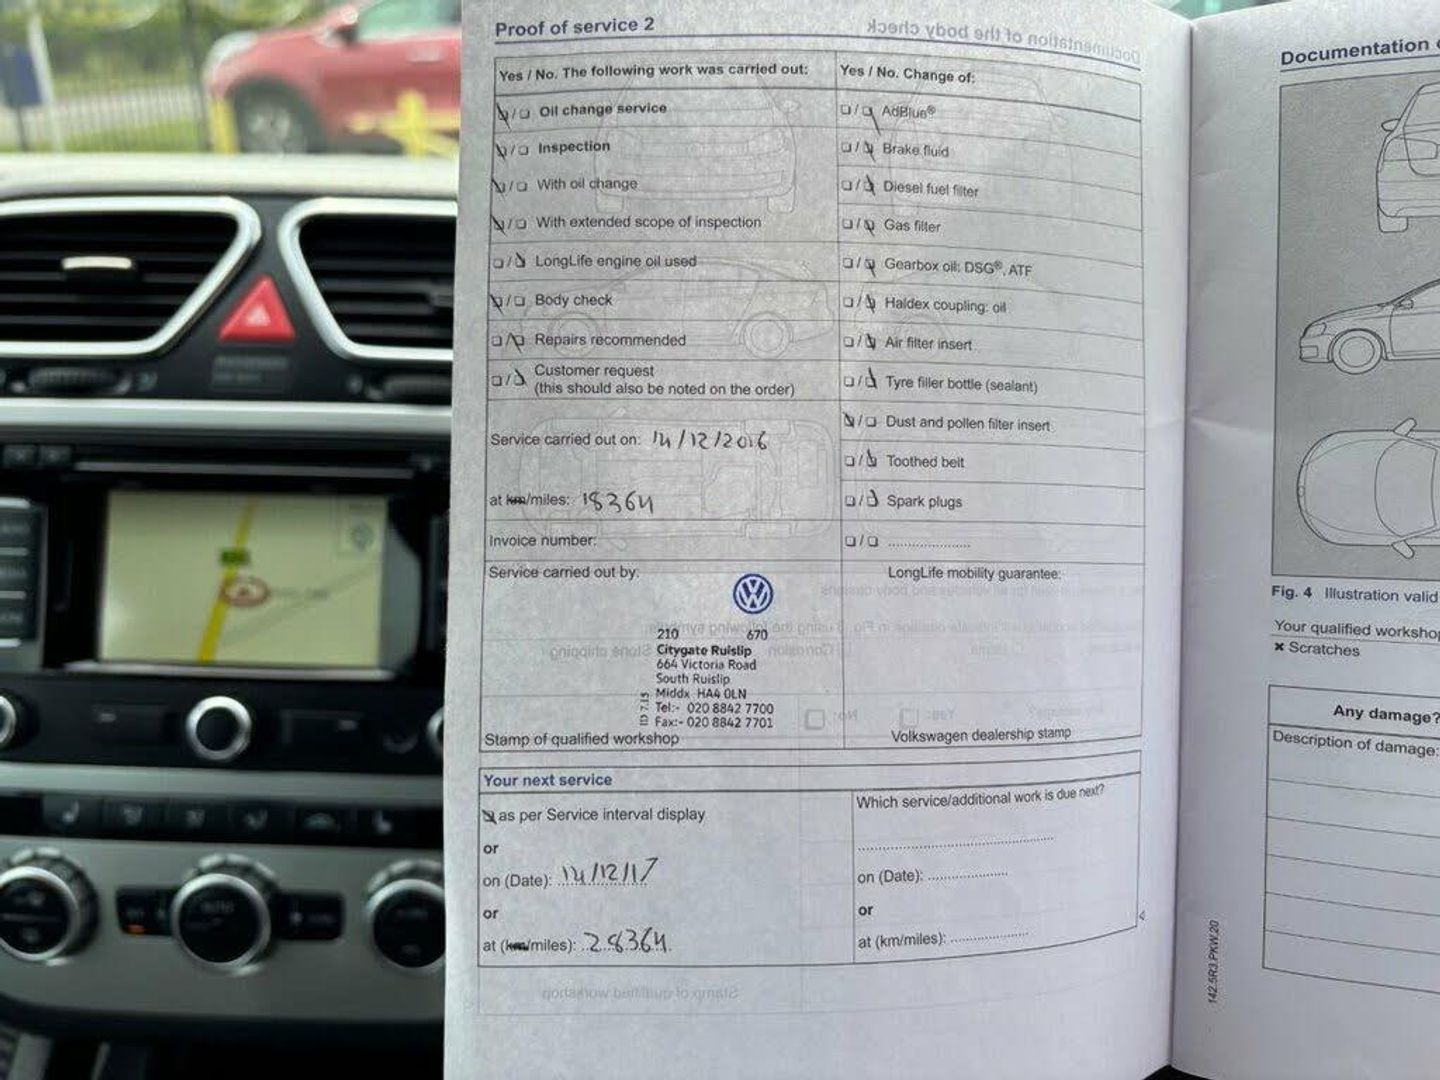 Proof of service 2
Yes / No. The following work was carried out:
Oil change service
Inspection
With oil change
With extended scope of inspection
LongLife engine oil used
Body check
Repairs recommended
Customer request
(this should also be noted on the order)
Service carried out on: 14/12/2016
at km/miles: 18364
Invoice number:
Service carried out by:
210 670
Citygate Ruislip
664 Victoria Road
South Ruislip
Middx HA4 0LN
Tel:- 020 8842 7700
Fax:- 020 8842 7701
ID 7.15
Stamp of qualified workshop
Yes / No. Change of:
AdBlue®
Brake fluid
Diesel fuel filter
Gas filter
Gearbox oil: DSG®, ATF
Haldex coupling: oil
Air filter insert
Tyre filler bottle (sealant)
Dust and pollen filter insert
Toothed belt
Spark plugs
LongLife mobility guarantee:
Volkswagen dealership stamp
Your next service
as per Service interval display
or
on (Date): 14/12/17
or
at (km/miles): 28364
Which service/additional work is due next?
on (Date):
or
at (km/miles):
142.5R3.PKW.20
Documentation
Fig. 4 Illustration valid
Your qualified workshop
× Scratches
Any damage?
Description of damage: